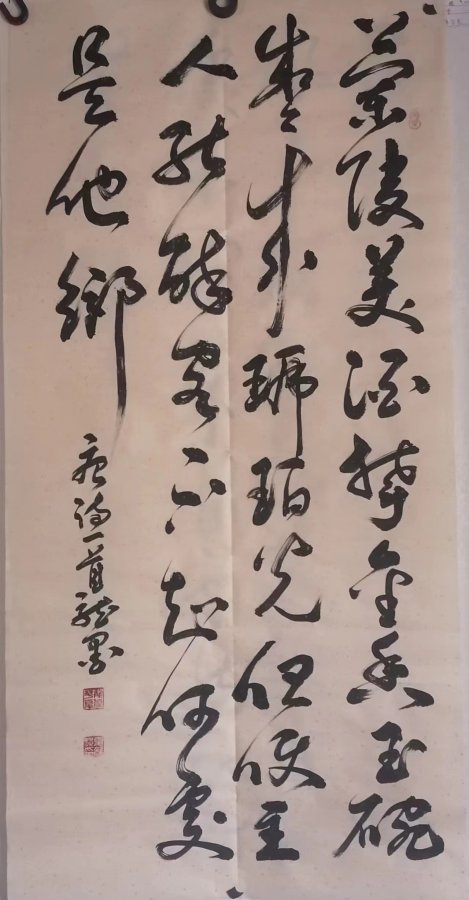 蘭陵美酒鬱金香玉碗
盛来琥珀光但使主
人能醉客不知何處
是他鄉
唐詩一首